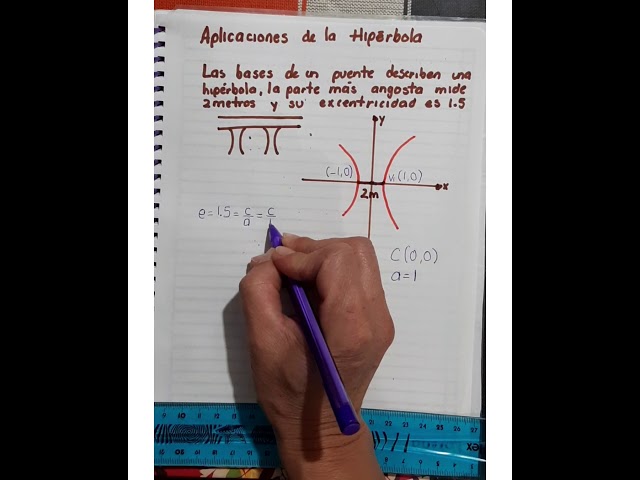 Aplicaciones de la Hipérbola
Las bases de un puente describen una
hipérbola, la parte más angosta mide
2 metros y su excentricidad es 1.5
y
(-1,0)
V₁(1,0)
x
2m
e = 1.5 = c/a = c/1
C(0,0)
a=1